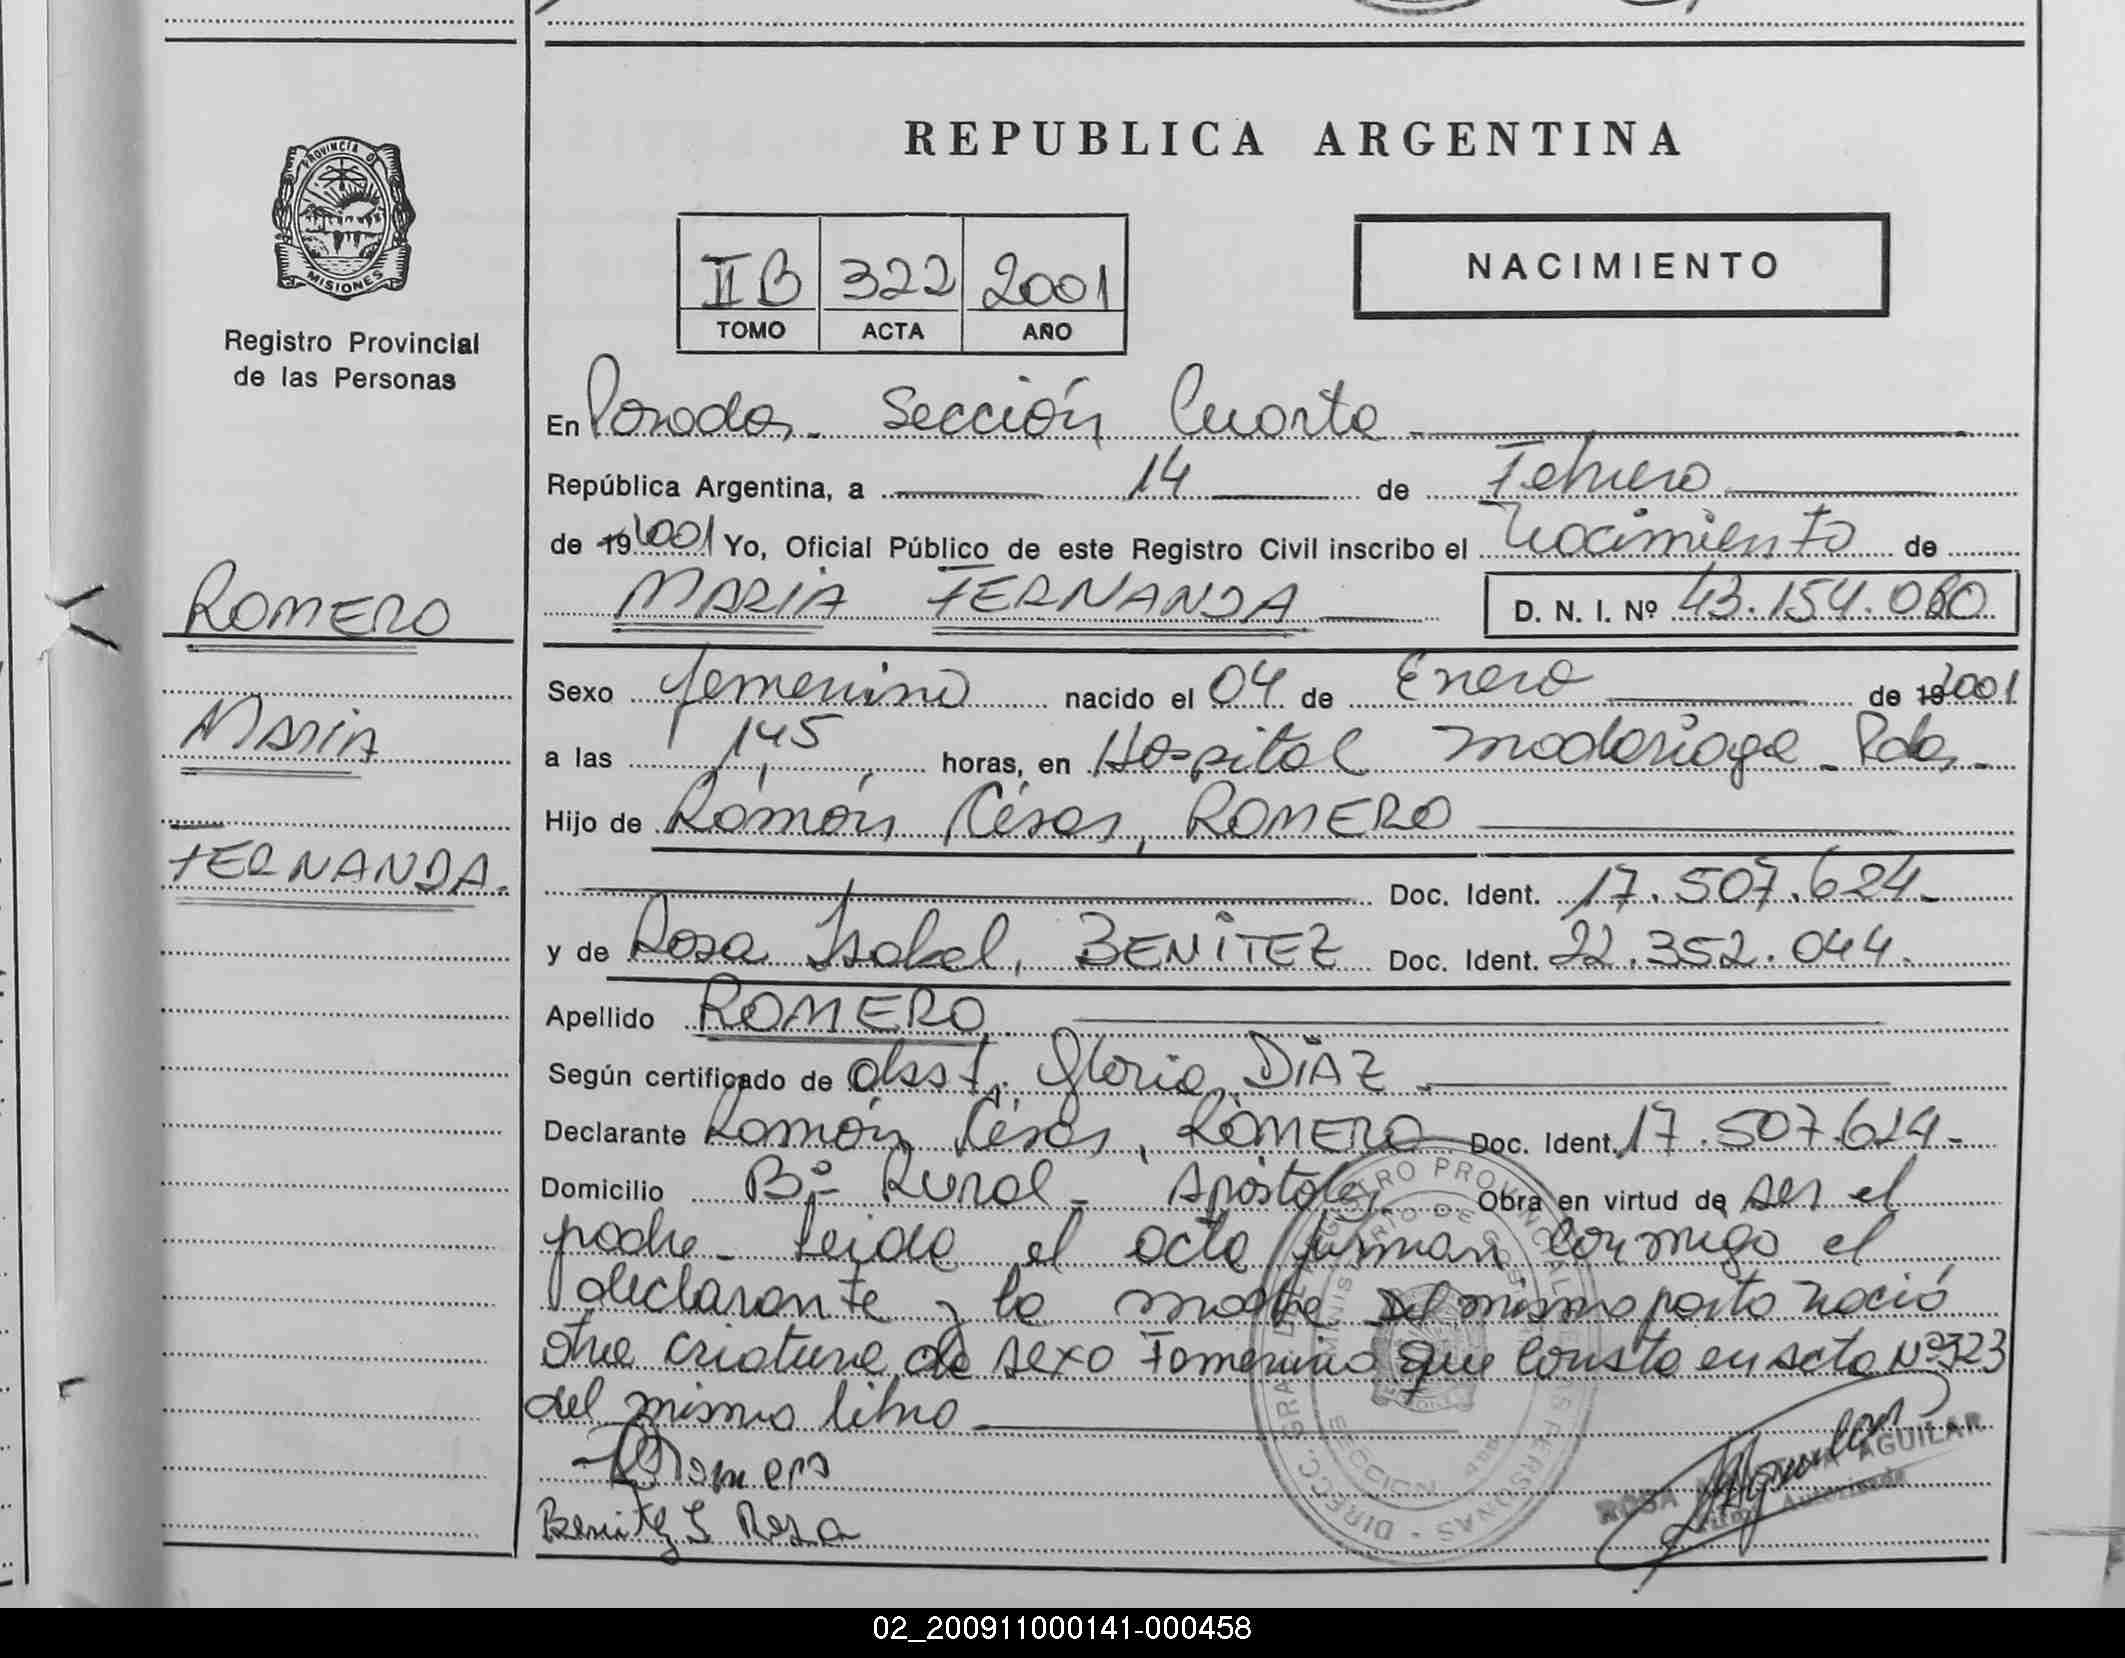 PROVINCIA D
MISIONES
Registro Provincial
de las Personas
ROMERO
MARIA
FERNANDA.
REPUBLICA ARGENTINA
II B 322 2001
TOMO ACTA AÑO
NACIMIENTO
En Posadas. Sección Cuarta
República Argentina, a 14 de Febrero
de 19 2001 Yo, Oficial Público de este Registro Civil inscribo el Nacimiento de
MARIA FERNANDA D. N. I. Nº 43.154.060
Sexo femenino nacido el 04 de Enero de 19 2001
a las 1,45 horas, en Hospital Madariaga - Pdas.
Hijo de Ramón César, ROMERO
Doc. Ident. 17.507.624.-
y de Rosa Isabel, BENITEZ Doc. Ident. 22.352.044.
Apellido ROMERO
Según certificado de obst. Gloria DIAZ
Declarante Ramón César, ROMERO Doc. Ident. 17.507.624-
Domicilio Bº Rural - Apóstoles. Obra en virtud de ser el
padre - Leida el acta firman conmigo el
declarante y la madre del mismo parto nació
otra criatura de sexo Femenino que consta en acta Nº 323
del mismo libro
Romero
Benitez I Rosa
ROSA AGUILAR
02_200911000141-000458